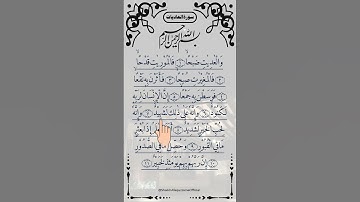 سورة العاديات
بسم الله الرحمن الرحيم
والعديت ضبحا ١ فالموريت قدحا
٢ فالمغيرت صبحا ٣ فأثرن به نقعا
٤ فوسطن به جمعا ٥ إن الإنسان لربه
لكنود ٦ وإنه على ذلك لشهيد ٧ وإنه
لحب الخير لشديد ٨ أفلا يعلم إذا بعثر
ما في القبور ٩ وحصل ما في الصدور
١٠ إن ربهم بهم يومئذ لخبير ١١